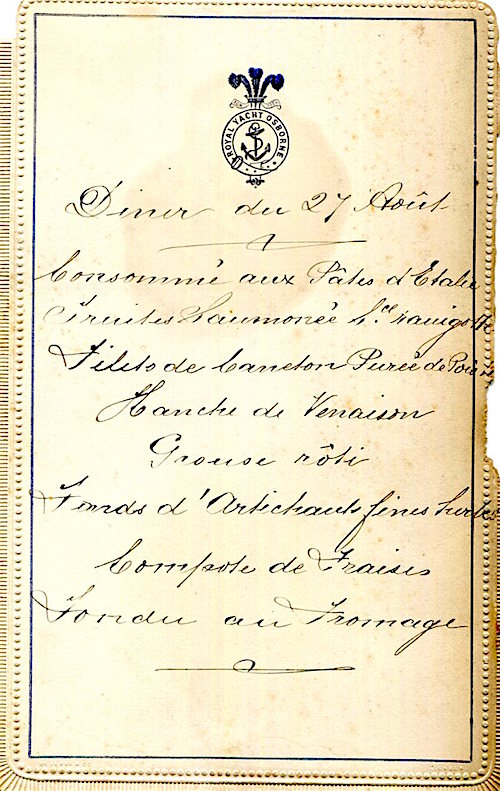 ROYAL YACHT OSBORNE
Diner du 27 Août
Consommé aux Pâtes d'Italie
Truites Saumonée S.ce ravigotte
Filets de Caneton Purée de Pois
Hanche de Venaison
Grouse rôti
Fonds d'Artichauts fines herbes
Compote de Fraises
Fondu au Fromage